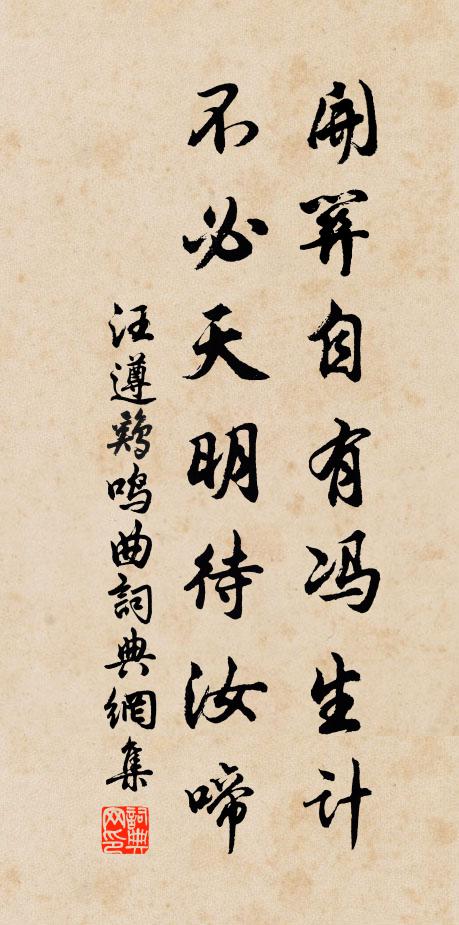 開關自有馮生計
不必天明待汝啼
汪遵鷄鳴曲詞典網集
詞典网印